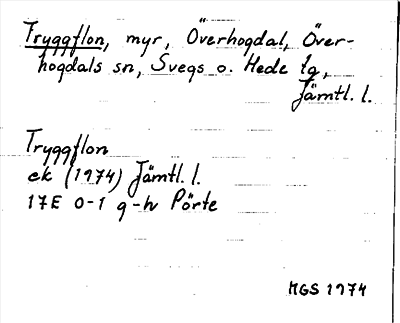 Tryggflon, myr, Överhogdal, Över-
hogdals sn, Svegs o. Hede tg,
Jämtl. l.
Tryggflon
ek (1974) Jämtl. l.
17E 0-1 g-h Pörte
MGS 1974